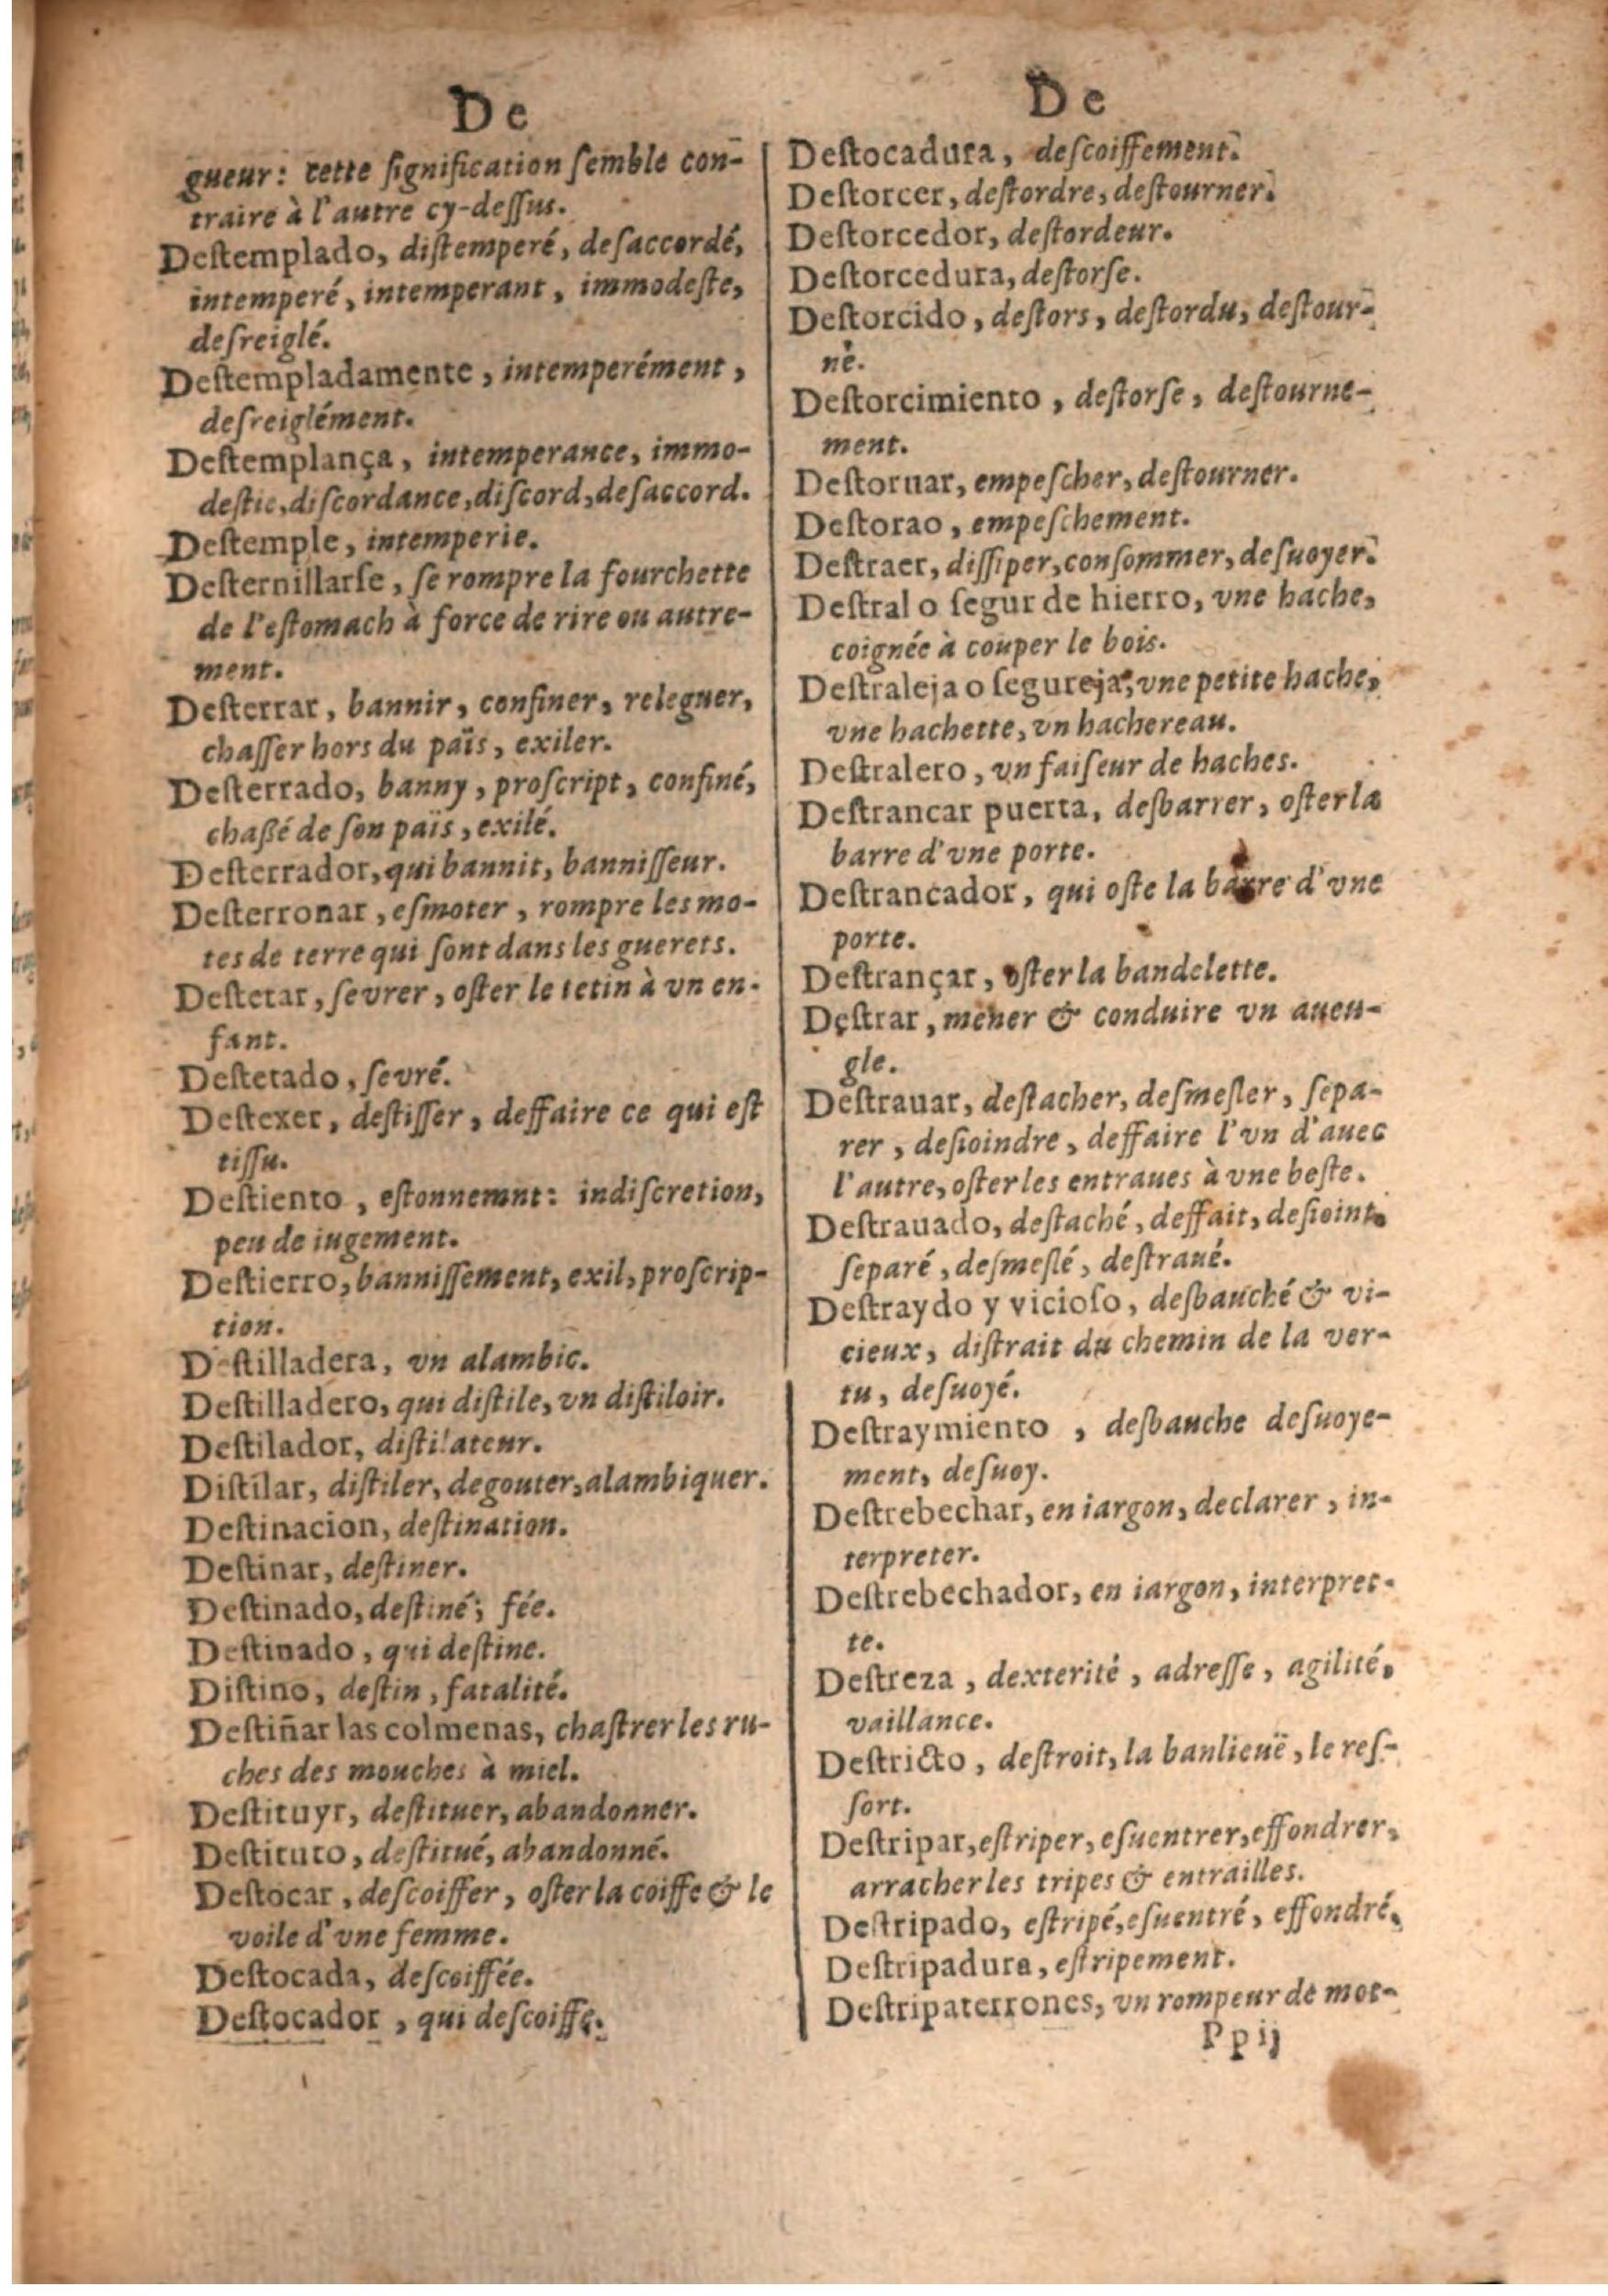 De
gueur: cette ſignification ſemble con-
traire à l'autre cy-deſſus.
Deſtemplado, diſtemperé, deſaccordé,
intemperé, intemperant, immodeſte,
deſreiglé.
Deſtempladamente, intemperément,
deſreiglément.
Deſtemplança, intemperance, immo-
deſtie, diſcordance, diſcord, deſaccord.
Deſtemple, intemperie.
Deſternillarſe, ſe rompre la fourchette
de l'eſtomach à force de rire ou autre-
ment.
Deſterrar, bannir, confiner, releguer,
chaſſer hors du païs, exiler.
Deſterrado, banny, proſcript, confiné,
chaßé de ſon païs, exilé.
Deſterrador, qui bannit, banniſſeur.
Deſterronar, eſmoter, rompre les mo-
tes de terre qui ſont dans les guerets.
Deſtetar, ſevrer, oſter le tetin à vn en-
fant.
Deſtetado, ſevré.
Deſtexer, deſtiſſer, deffaire ce qui eſt
tiſſu.
Deſtiento, eſtonnemnt: indiſcretion,
peu de iugement.
Deſtierro, banniſſement, exil, proſcrip-
tion.
Deſtilladera, vn alambic.
Deſtilladero, qui diſtile, vn diſtiloir.
Deſtilador, diſtilateur.
Diſtilar, diſtiler, degouter, alambiquer.
Deſtinacion, deſtination.
Deſtinar, deſtiner.
Deſtinado, deſtiné; fée.
Deſtinado, qui deſtine.
Diſtino, deſtin, fatalité.
Deſtiñar las colmenas, chaſtrer les ru-
ches des mouches à miel.
Deſtituyr, deſtituer, abandonner.
Deſtituto, deſtitué, abandonné.
Deſtocar, deſcoiffer, oſter la coiffe & le
voile d'vne femme.
Deſtocada, deſcoiffée.
Deſtocador, qui deſcoiffe.
De
Deſtocadura, deſcoiffement.
Deſtorcer, deſtordre, deſtourner.
Deſtorcedor, deſtordeur.
Deſtorcedura, deſtorſe.
Deſtorcido, deſtors, deſtordu, deſtour-
né.
Deſtorcimiento, deſtorſe, deſtourne-
ment.
Deſtoruar, empeſcher, deſtourner.
Deſtorao, empeſchement.
Deſtraer, diſſiper, conſommer, deſuoyer.
Deſtral o ſegur de hierro, vne hache,
coignée à couper le bois.
Deſtraleja o ſegureja, vne petite hache,
vne hachette, vn hachereau.
Deſtralero, vn faiſeur de haches.
Deſtrancar puerta, deſbarrer, oſter la
barre d'vne porte.
Deſtrancador, qui oſte la barre d'vne
porte.
Deſtrançar, oſter la bandelette.
Deſtrar, mener & conduire vn aueu-
gle.
Deſtrauar, deſtacher, deſmeſler, ſepa-
rer, deſioindre, deffaire l'vn d'auec
l'autre, oſter les entraues à vne beſte.
Deſtrauado, deſtaché, deffait, deſioint,
ſeparé, deſmeſlé, deſtraué.
Deſtraydo y vicioſo, deſbauché & vi-
cieux, diſtrait du chemin de la ver-
tu, deſuoyé.
Deſtraymiento, deſbauche deſuoye-
ment, deſuoy.
Deſtrebechar, en iargon, declarer, in-
terpreter.
Deſtrebechador, en iargon, interpret-
te.
Deſtreza, dexterité, adreſſe, agilité,
vaillance.
Deſtricto, deſtroit, la banlieuë, le reſ-
ſort.
Deſtripar, eſtriper, eſuentrer, effondrer,
arracher les tripes & entrailles.
Deſtripado, eſtripé, eſuentré, effondré.
Deſtripadura, eſtripement.
Deſtripaterrones, vn rompeur de mot-
Ppij